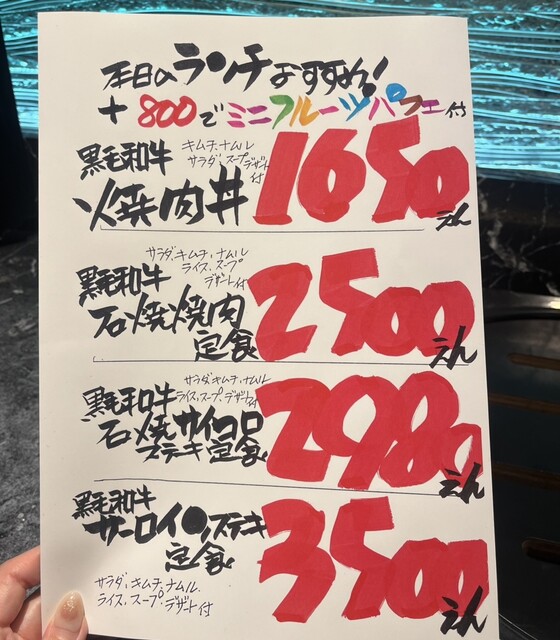 本日のランチおすすめ!
+800でミニフルーツパフェ付
黒毛和牛
キムチ、ナムル
サラダ、スープ、デザート
付
焼肉丼
1650
えん
黒毛和牛
サラダ、キムチ、ナムル
ライス、スープ
デザート付
石焼焼肉
定食
2500
えん
黒毛和牛
サラダ、キムチ、ナムル
ライス、スープ、デザート付
石焼サイコロ
ステーキ定食
2980
えん
黒毛和牛
サーロインステーキ
定食
サラダ、キムチ、ナムル、
ライス、スープ、デザート付
3500
えん